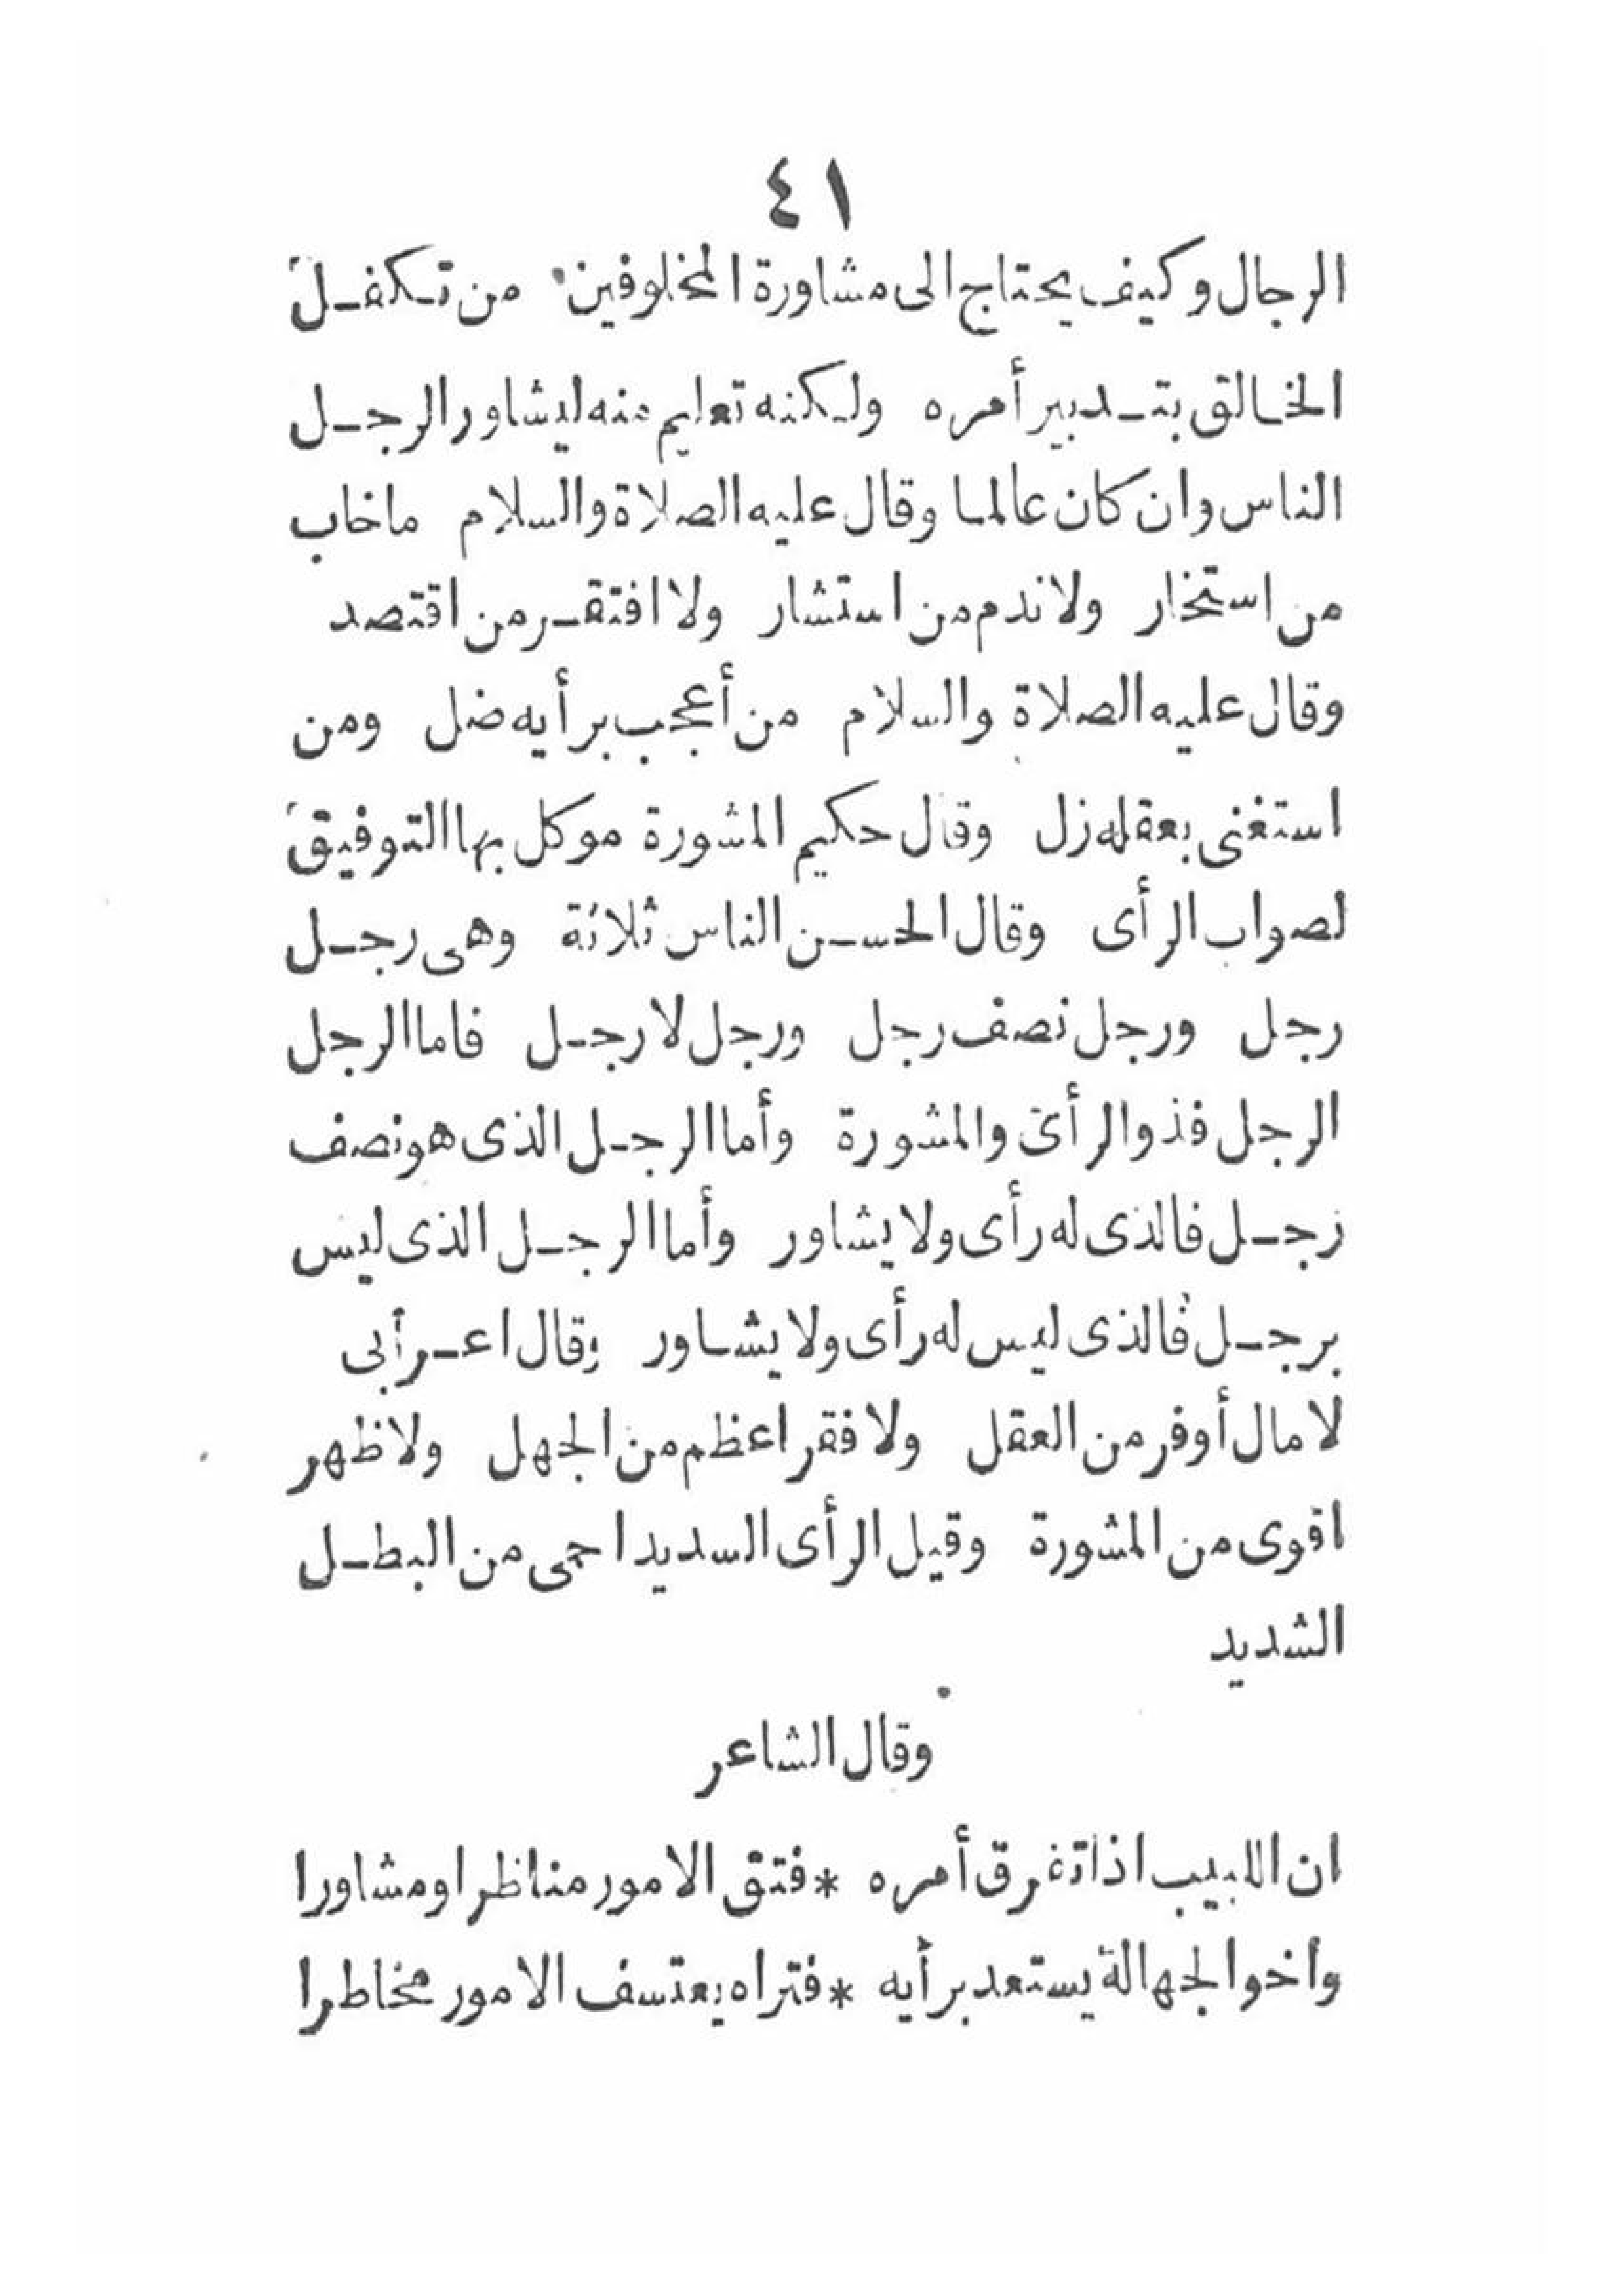 ٤١
الرجال وكيف يحتاج الى مشاورة المخلوفين من تكفل
الخالق بتدبير أمره ولكنه تعليم منه ليشاور الرجل
الناس وان كان عالما وقال عليه الصلاة والسلام ماخاب
من استخار ولا ندم من استشار ولا افتقر من اقتصد
وقال عليه الصلاة والسلام من أعجب برأيه ضل ومن
استغنى بعقله زل وقال حكيم المشورة موكل بها التوفيق
لصواب الرأى وقال الحسن الناس ثلاثة وهى رجل
رجل ورجل نصف رجل ورجل لا رجل فاما الرجل
الرجل فذو الرأى والمشورة وأما الرجل الذى هو نصف
رجل فالذى له رأى ولا يشاور وأما الرجل الذى ليس
برجل فالذى ليس له رأى ولا يشاور وقال اعرأبى
لا مال أوفر من العقل ولا فقر اعظم من الجهل ولا ظهر
اقوى من المشورة وقيل الرأى السديد احمى من البطل
الشديد
وقال الشاعر
ان اللبيب اذا تغرق أمره * فتق الامور مناظرا ومشاورا
وأخو الجهالة يستعد برأيه * فتراه يعتسف الامور مخاطرا